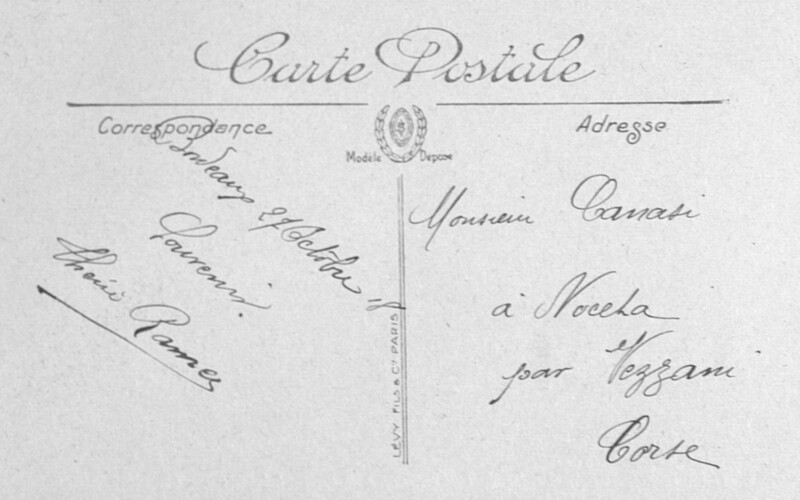 Carte Postale
Correspondance
Adresse
Modèle Déposé
Bordeaux 27 Octobre 18
Souvenir.
Ramer
Monsieur Canasi
à Noceta
par Vezzani
Corse
LÉVY FILS & Cie PARIS